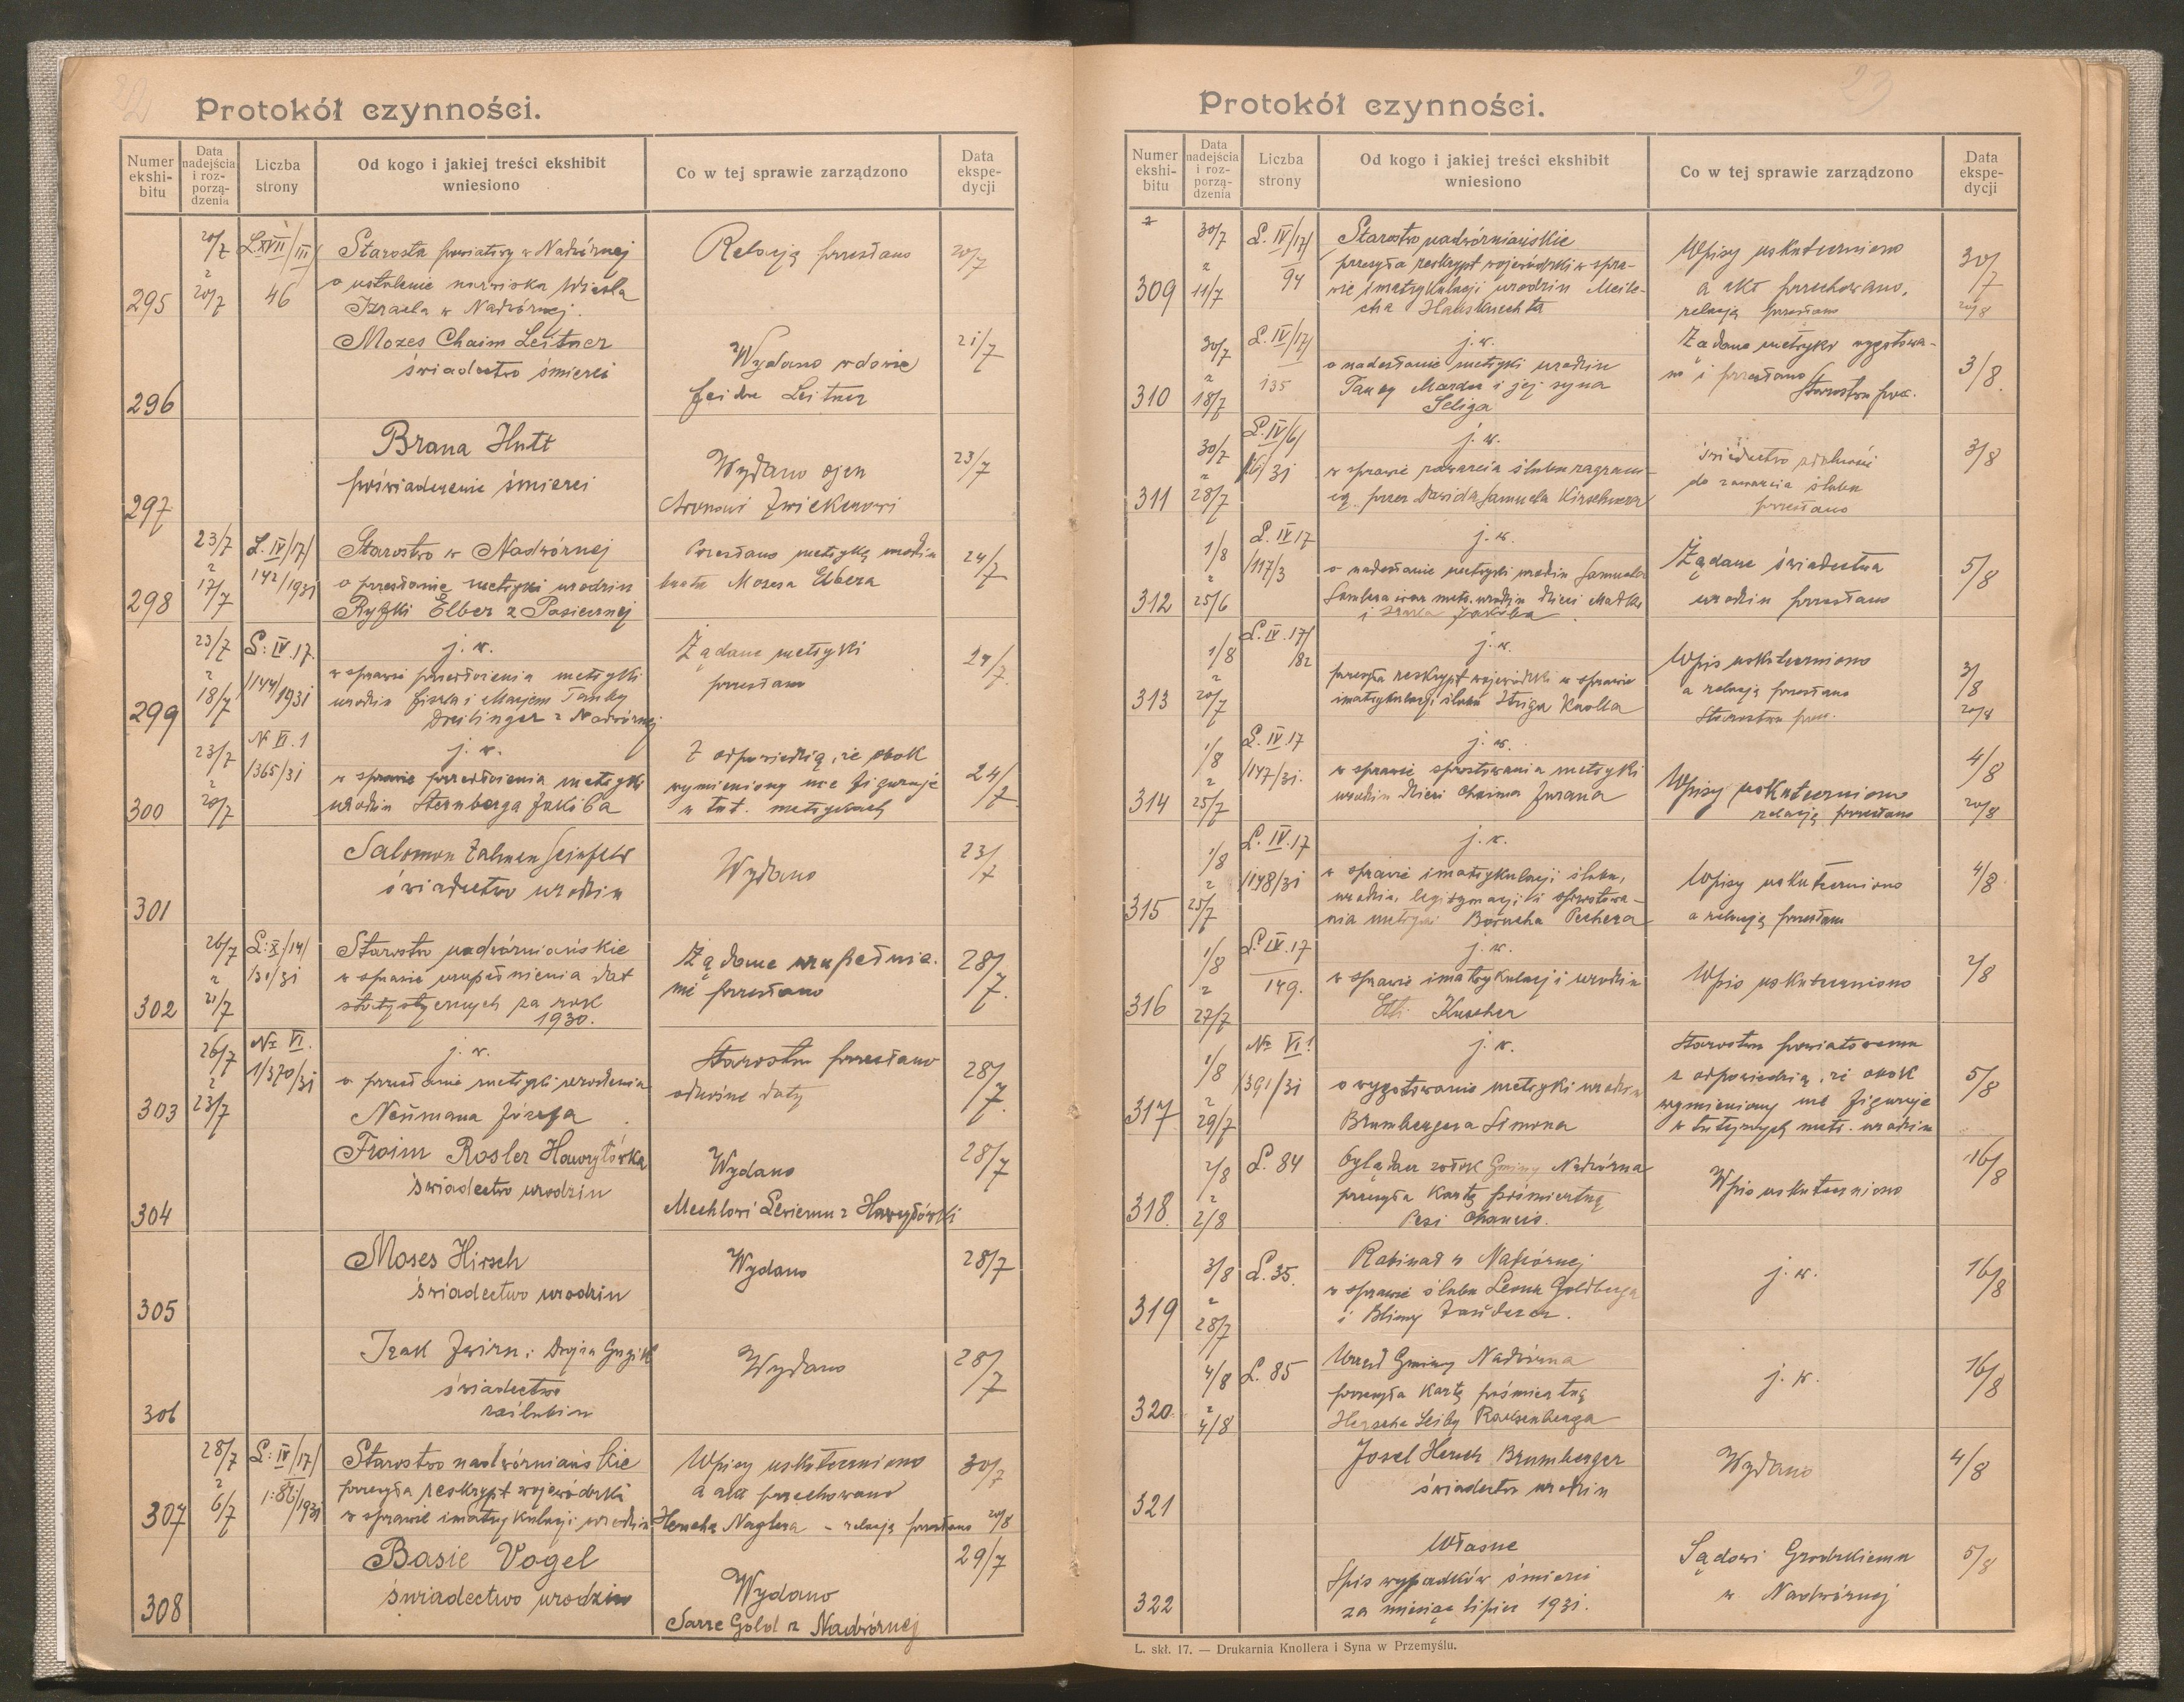 22
Protokół czynności.
Numer ekshi-bitu
Data nadejścia i roz-porzą-dzenia
Liczba strony
Od kogo i jakiej treści ekshibit wniesiono
Co w tej sprawie zarządzono
Data ekspe-dycji
295
20/7 z 20/7
L XVII/III/ 46
Starosta powiatowy w Nadwórnej
o ustalenie nazwiska
Izraela w Nadwórnej.
Relację przesłano
20/7
296
Mozes Chaim Leitner
świadectwo śmierci
Wydano wdowie
Leitner
21/7
297
Brana Hutt
poświadczenie śmierci
Wydano ojcu
23/7
298
23/7 z 17/7
L. IV/17/ 142/1931
Starostwo w Nadwórnej
o przesłanie metryki urodzin
Ryfki Elber z Pasiecznej
Przesłano metrykę urodzin
Mozesa Elbera
24/7
299
23/7 z 18/7
L: IV.17. /144/1931
j. w.
w sprawie przedłożenia metryki
urodzin i Mariem Tauby
Dreilinger z Nadwórnej
Żądane metryki
przesłano
24/7
300
23/7 z 20/7
N VI.1 /365/31
j. w.
w sprawie przedłożenia metryki
urodzin Sternberga Jakóba
Z odpowiedzią, że obok
wymieniony nie figuruje
w tut. metrykach
24/7
301
Salomon Zalmen Seinfeld
świadectwo urodzin
Wydano
23/7
302
26/7 z 21/7
L: X/14/ /31/31
Starostwo nadwórniańskie
w sprawie uzupełnienia dat
statystycznych za rok
1930.
Żądane uzupełnie-
nie przesłano
28/7.
303
26/7 z 23/7
Nr VI. 1/370/31
j. w.
o przesłanie metryki urodzenia
Neümana Józefa
Starostwu przesłano
odnośne daty
28/7.
304
Froim Rosler Hawryłówka
świadectwo urodzin
Wydano
Mechlowi Lewiemu z Hawryłówki
28/7
305
Moses Hirsch
świadectwo urodzin
Wydano
28/7
306
Izak Zwirn i
świadectwo
zaślubin
Wydano
28/7
307
28/7 z 6/7
L: IV/17/ /1931
Starostwo nadwórniańskie
przesyła reskrypt wojewódzki
w sprawie imatrykulacji urodzin
Wpisy uskuteczniono
a akta przechowano
Herscha Naglera - relację przesłano
30/7
20/8
308
Basie Vogel
świadectwo urodzin
Wydano
Sarze Gold z Nadwórnej
29/7
23
Protokół czynności.
Numer ekshi-bitu
Data nadejścia i roz-porzą-dzenia
Liczba strony
Od kogo i jakiej treści ekshibit wniesiono
Co w tej sprawie zarządzono
Data ekspe-dycji
309
30/7 z 11/7
L. IV/17/ 94
Starostwo nadwórniańskie
przesyła reskrypt wojewódzki w spra-
wie imatrykulacji urodzin Meile-
cha Hausknechta
Wpisy uskuteczniono
a akt przechowano,
relację przesłano
30/7
20/8
310
30/7 z 18/7
L. IV/17/ 135
j. w.
o nadesłanie metryki urodzin
Tauby i jej syna
Seliga
Żądane metryki wygotowa-
no i przesłano
Starostwu pow.
3/8.
311
30/7 z 28/7
L. IV/6/ 16/31
j. w.
w sprawie zawarcia ślubu zagrani-
cą przez Dawida Samuela Kirschnera
Świadectwo zdolności
do zawarcia ślubu
przesłano
3/8
312
1/8 z 25/6
L. IV 17 /117/3
j. w.
o nadesłanie metryki urodzin Samuela
oraz metr. urodzin dzieci
i Jakóba
Żądane świadectwa
urodzin przesłano
5/8
313
1/8 z 20/7
L. IV. 17/ /82
j. w.
przesyła reskrypt wojewódzki w sprawie
imatrykulacji ślubu Knolla
Wpis uskuteczniono
a relację przesłano
Starostwu pow.
3/8
20/8
314
1/8 z 25/7
L. IV. 17 /147/31.
j. w.
w sprawie sprostowania metryki
urodzin dzieci Chaima Jurana
Wpisy uskuteczniono
relację przesłano
4/8
20/8
315
1/8 z 25/7
L. IV. 17 /148/31
j. w.
w sprawie imatrykulacji ślubu,
urodzin, legitymacji i sprostowa-
nia metryki Borucha Pechera
Wpisy uskuteczniono
a relację przesłano
4/8
316
1/8 z 27/7
L. IV. 17 149.
j. w.
w sprawie imatrykulacji urodzin
Etti Kuscher
Wpis uskuteczniono
2/8
317
1/8 z 29/7
Nr VI.1 /391/31
j. w.
o wygotowanie metryki urodzin
Brumbergera Simona
Starostwu powiatowemu
z odpowiedzią, że obok
wymieniony nie figuruje
w tutejszych metr. urodzin
5/8
318
2/8 z 2/8
L. 84
Oglądacz zwłok Gminy Nadwórna
przesyła Kartę pośmiertną
Pesi
Wpis uskuteczniono
16/8
319
3/8 z 28/7
L. 35.
Rabinat w Nadwórnej
w sprawie ślubu Leona Goldberga
i Blimy
j. w.
16/8
320
4/8 z 4/8
L. 85
Urząd Gminy Nadwórna
przesyła Kartę pośmiertną
Herscha Leiby
j. w.
16/8
321
Josel Hersch Brumberger
świadectwo urodzin
Wydano
4/8
322
Własne
Spis wypadków śmierci
za miesiąc lipiec 1931.
Sądowi Grodzkiemu
w Nadwórnej
5/8
L. skł. 17. — Drukarnia Knollera i Syna w Przemyślu.